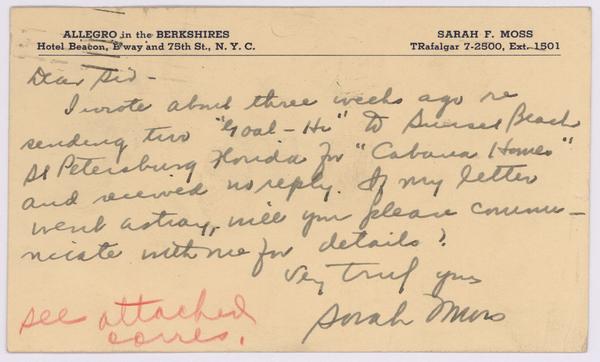 ALLEGRO in the BERKSHIRES
Hotel Beacon, B'way and 75th St., N. Y. C.
SARAH F. MOSS
TRafalgar 7-2500, Ext. 1501
Dear Sid -
I wrote about three weeks ago re
sending two "Goal-Hi" to Sunset Beach
St Petersburg Florida for "Cabana Homes"
and received no reply. If my letter
went astray, will you please commu-
nicate with me for details?
Very truly yrs
Sarah Moss
see attached
corres.